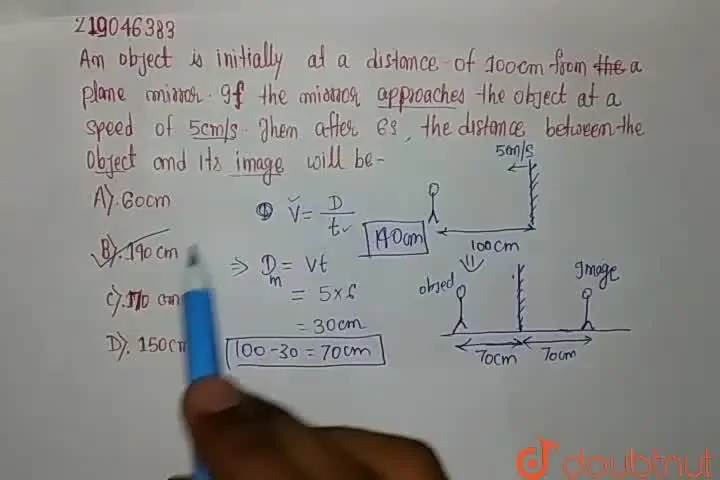 219046383
An object is initially at a distance of 100cm from the a
plane mirror. If the mirror approaches the object at a
speed of 5cm/s. Then after 6s, the distance between the
object and its image will be-
A). 60cm
B). 140 cm
C). 170 cm
D). 150cm
V = D/t
⇒ Dm = Vt
= 5×6
= 30cm
100-30 = 70cm
140cm
5cm/s
100cm
object
Image
70cm
70cm
doubtnut